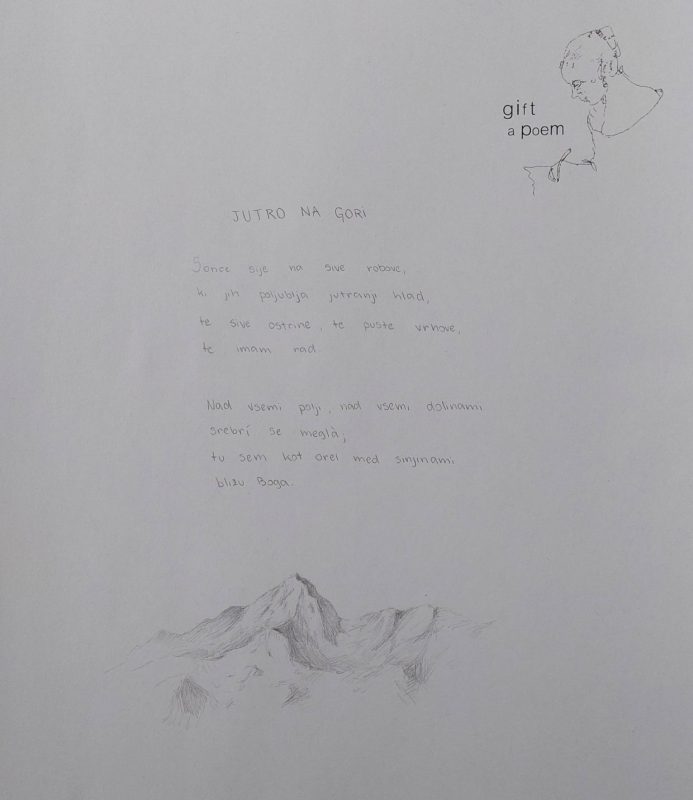 gift
a poem
JUTRO NA GORI
Sonce sije na sive robove,
ki jih poljublja jutranji hlad,
te sive ostrine, te puste vrhove,
te imam rad.
Nad vsemi polji, nad vsemi dolinami
srebrí se meglà,
tu sem kot orel med sinjinami
blizu Boga.